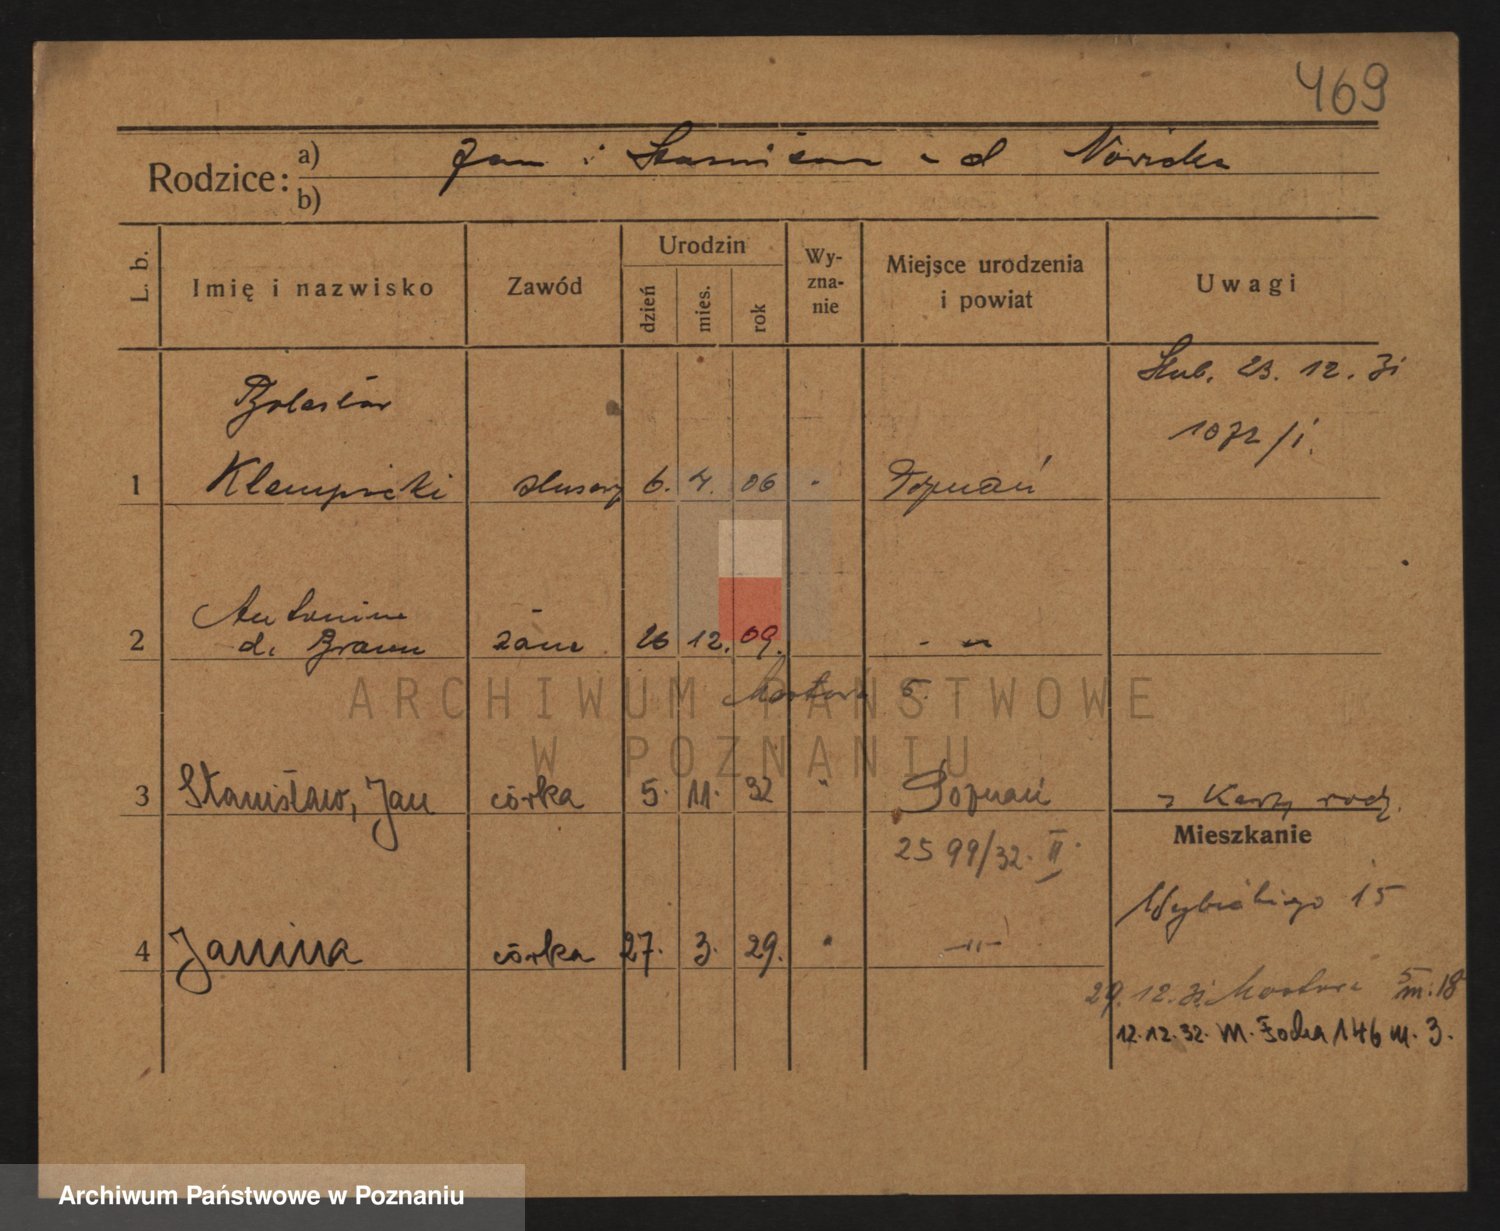 469
Rodzice: a) Jan i Stanisława d Nowicka
b)
L. b. Imię i nazwisko Zawód Urodzin dzień mies. rok Wy-zna-nie Miejsce urodzenia i powiat Uwagi
Ślub. 23. 12. 31
Bolesław
1072/I.
1 Klempicki ślusarz 6. 4. 06 Poznań
Antonina
2 d. Braun żona 26 12. 09. - " -
Mostowa 5.
ARCHIWUM PAŃSTWOWE
W POZNANIU
3 Stanisław, Jan córka 5. 11. 32 " Poznań z Karty rodz.
Mieszkanie
2599/32. II
Wybickiego 15
4 Janina córka 27. 3. 29. " -"-
29. 12. 31 Mostowa 5 m. 18
12. 12. 32. M. Focha 146 m. 3.
Archiwum Państwowe w Poznaniu